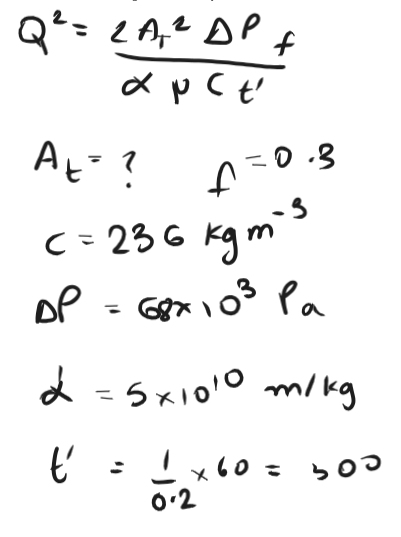 Q² = 2 A_T² ΔP f
α μ C t'
A_t = ? f = 0.3
C = 236 kg m⁻³
ΔP = 68×10³ Pa
α = 5×10¹⁰ m/kg
t' = 1/0.2 × 60 = 300